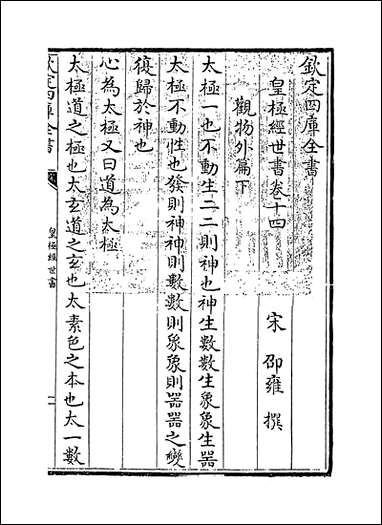 欽定四庫全書
皇極經世書卷十四
宋 邵雍 撰
觀物外篇下
太極一也不動生二二則神也神生數數生象象生器
太極不動性也發則神神則數數則象象則器器之變
復歸於神也
心為太極又曰道為太極
太極道之極也太玄道之玄也太素色之本也太一數
欽定四庫全書
皇極經世書